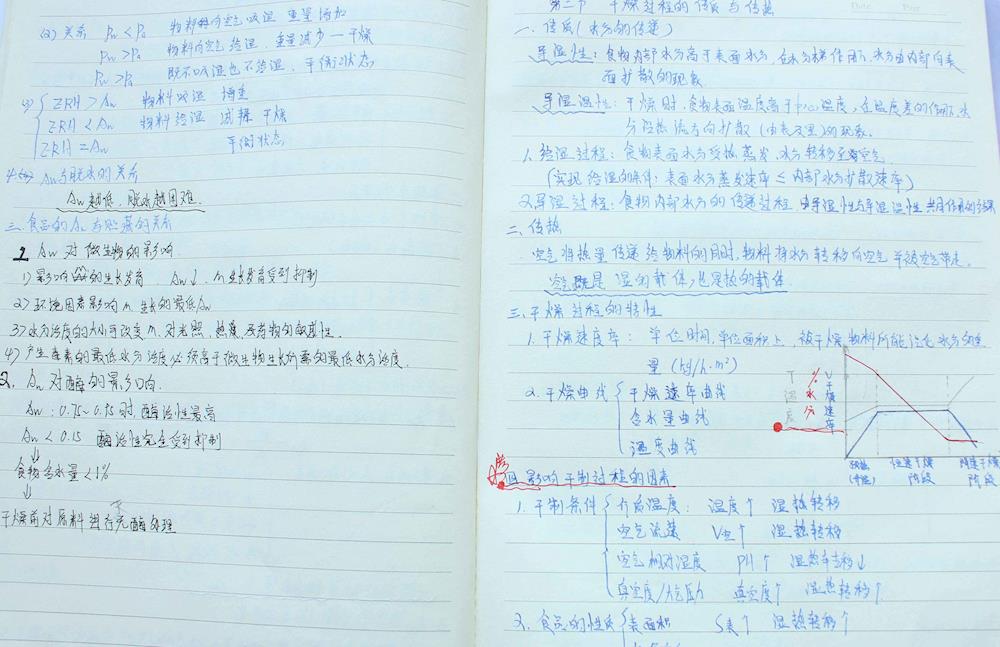 (2) 关系 Pw < Pa 物料向空气吸湿 重量增加
Pw > Pa 物料向空气给湿、重量减少一干燥
Pw > Pa 既不吸湿也不给湿、平衡状态
ERH > Aw 物料吸湿 增重
ERH < Aw 物料给湿 减轻 干燥
ERH = Aw 平衡状态
4. Aw与脱水的关系
Aw越低、脱水越困难.
三.食品的Aw与贮藏的关系
1. Aw 对微生物的影响
1) 影响的生长发育 Aw↓、m生长发育受到抑制
2) 环境因素影响 m 生长的最低Aw
3) 水分活度的大小可改变 m. 对光照、热藻及药物的敏感性.
4) 产生毒素的最低水分活度必须高于微生物生长所需的最低水分活度.
2. Aw 对酶的影响.
Aw : 0.75~0.95时,酶活性最高
Aw < 0.15 酶活性完全受到抑制
↓
食物含水量<1%
↓
干燥前对原料进行灭酶处理
第二节 干燥过程的传质与传热
一. 传质(水分的传递)
导湿性: 食物内部水分高于表面水分、在水分梯作用下、水分由内部向表
面扩散的现象
导湿温性: 干燥时、食物表面温度高于中心温度,在温度差的作用下,水
分沿热流方向扩散(由表及里)的现象.
1. 给湿过程: 食物表面水分受热蒸发、水分转移至空气.
(实现给湿的条件: 表面水分蒸发速率 ≤ 内部水分扩散速率)
2. 导湿过程: 食物内部水分的传递过程. 由导湿性与导湿温性共同作用的结果
二、传热
空气将热量传递给物料的同时、物料将水分转移向空气并被空气带走.
空气既是湿的载体,也是热的载体.
三.干燥过程的特性
1. 干燥速度率: 单位时间,单位面积上、被干燥物料所能汽化水分的重
量 (kg/h·m²)
2. 干燥曲线 干燥速率曲线
含水量曲线
温度曲线
T 温度 % 水分 V 干燥速率
预热 恒速干燥 阶段 降速干燥 阶段
四 影响干制过程的因素
1. 干制条件 介质温度: 温度↑ 湿热转移
空气流速 V空↑ 湿热转移
空气相对湿度 PH↑ 湿热转移↓
真空度/大气压力 真空度↑ 湿热转移↑
2. 食品的性质 表面积 S表↑ 湿热转移↑